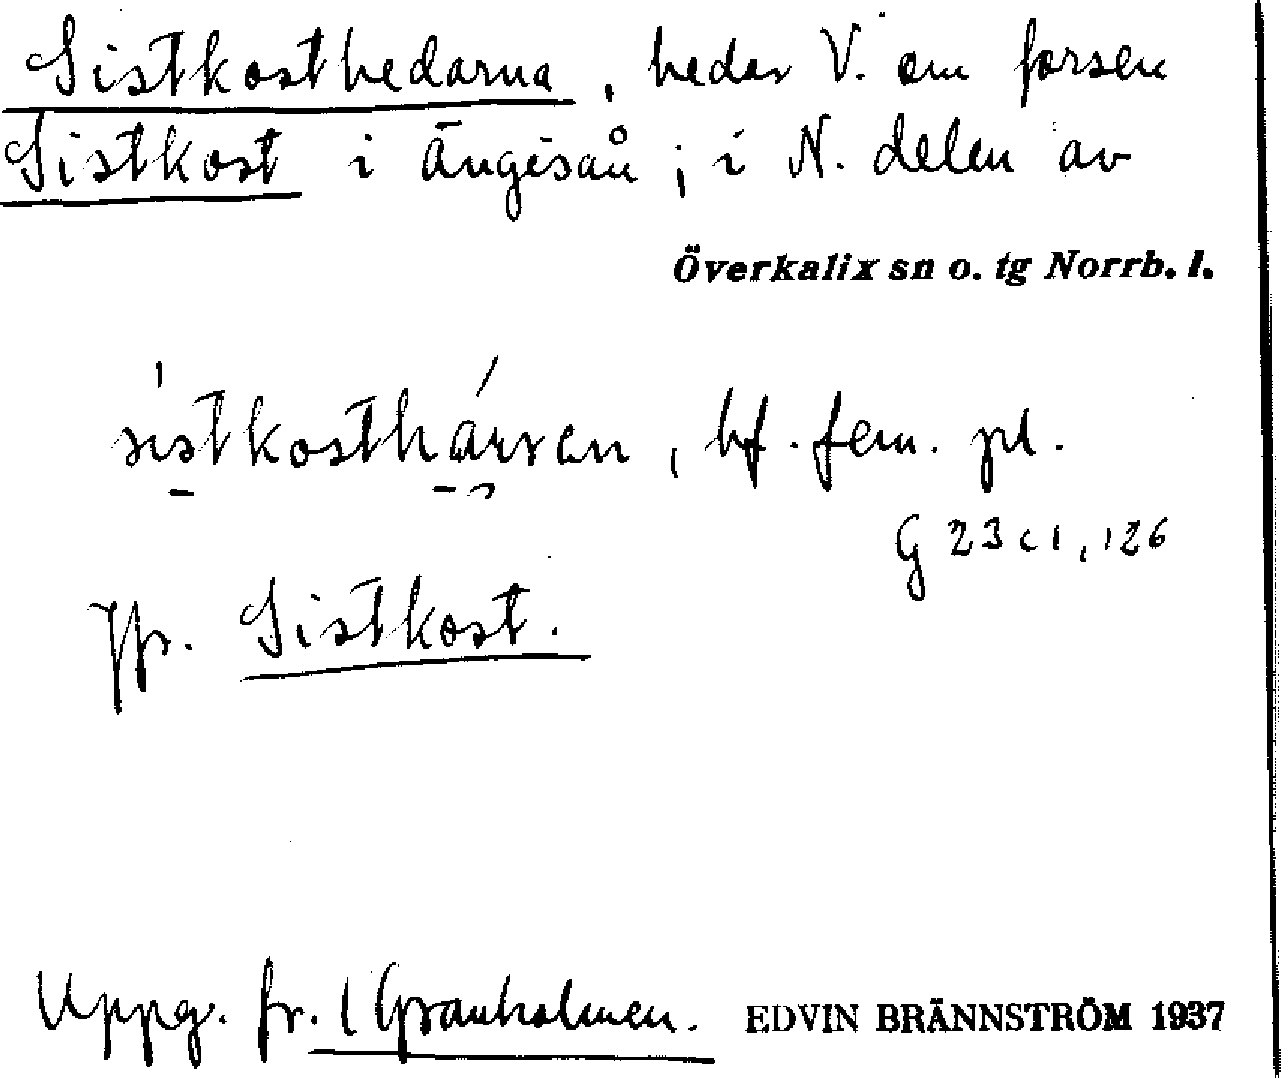 Sistkosthedarna, hedar V. om forsen
Sistkost i Ängesån; i N. delen av
Överkalix sn o. tg Norrb. l.
bf. fem. pl.
G 23 c 1, 126
Jfr. Sistkost.
Uppg. fr. Granholmen. EDVIN BRÄNNSTRÖM 1937